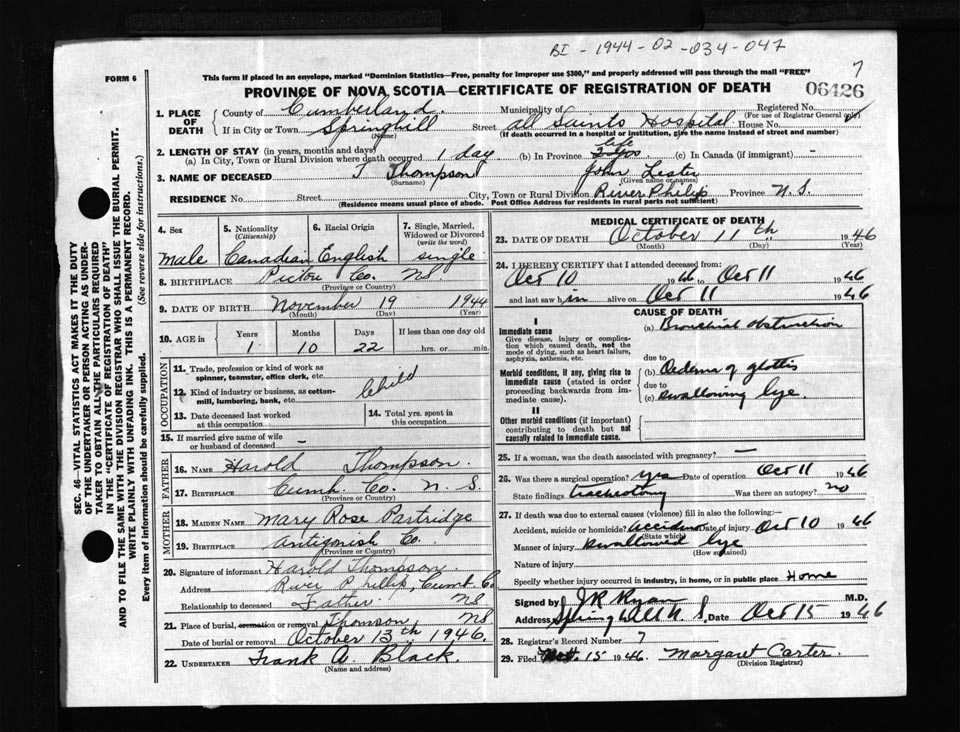 BI - 1944-02-034-047
7
FORM 6
This form if placed in an envelope, marked "Dominion Statistics—Free, penalty for improper use $300," and properly addressed will pass through the mail "FREE"
PROVINCE OF NOVA SCOTIA—CERTIFICATE OF REGISTRATION OF DEATH
06426
1. PLACE OF DEATH
County of Cumberland. Municipality of Registered No.
(For use of Registrar General only)
If in City or Town Springhill Street All Saints Hospital House No.
(Name) (If death occurred in a hospital or institution, give the name instead of street and number)
2. LENGTH OF STAY (in years, months and days) life
(a) In City, Town or Rural Division where death occurred 1 day (b) In Province 2 yrs (c) In Canada (if immigrant) -
3. NAME OF DECEASED Thompson John Lester
(Surname) (Given name or names)
RESIDENCE No. Street City, Town or Rural Division River Philip Province N.S.
(Residence means usual place of abode. Post Office Address for residents in rural parts not sufficient)
4. Sex
male
5. Nationality
(Citizenship)
Canadian
6. Racial Origin
English
7. Single, Married, Widowed or Divorced
(write the word)
single
8. BIRTHPLACE Pictou Co. NS
(Province or Country)
9. DATE OF BIRTH November 19 1944
(Month) (Day) (Year)
10. AGE in Years Months Days If less than one day old
1 10 22 hrs. or min.
OCCUPATION
11. Trade, profession or kind of work as spinner, teamster, office clerk, etc.
12. Kind of industry or business, as cotton-mill, lumbering, bank, etc.
Child
13. Date deceased last worked at this occupation
14. Total yrs. spent in this occupation
15. If married give name of wife or husband of deceased -
FATHER
16. NAME Harold Thompson.
17. BIRTHPLACE Cumb. Co. N.S.
(Province or Country)
MOTHER
18. MAIDEN NAME Mary Rose Partridge
19. BIRTHPLACE Antigonish Co.
(Province or Country)
20. Signature of informant Harold Thompson.
Address River Phillip, Cumb. Co
Relationship to deceased Father. NS
21. Place of burial, cremation or removal Thomson, NS
Date of burial or removal October 13th 1946.
22. UNDERTAKER Frank A. Black.
(Name and address)
MEDICAL CERTIFICATE OF DEATH
23. DATE OF DEATH October 11th 1946
(Month) (Day) (Year)
24. I HEREBY CERTIFY that I attended deceased from:
Oct 10 1946 to Oct 11 1946
and last saw him alive on Oct 11 1946
CAUSE OF DEATH
I
Immediate cause
Give disease, injury or complication which caused death, not the mode of dying, such as heart failure, asphyxia, asthenia, etc.
(a) Bronchial obstruction
due to
Morbid conditions, if any, giving rise to immediate cause (stated in order proceeding backwards from immediate cause).
(b) Oedema of glottis
due to
(c) swallowing lye.
II
Other morbid conditions (if important) contributing to death but not causally related to immediate cause.
25. If a woman, was the death associated with pregnancy? —
26. Was there surgical operation? yes Date of operation Oct 11 1946
State findings tracheotomy Was there an autopsy? no
27. If death was due to external causes (violence) fill in also the following:-
Accident, suicide or homicide? accident Date of injury Oct 10 1946
(State which)
Manner of injury swallowed lye
(How sustained)
Nature of injury
Specify whether injury occurred in industry, in home, or in public place Home
Signed by J R Ryan M.D.
Address Springhill N.S, Date Oct 15 1946
28. Registrar's Record Number 7
29. Filed 15 1946. Margaret Carter.
(Division Registrar)
SEC. 46—VITAL STATISTICS ACT MAKES IT THE DUTY
OF THE UNDERTAKER OR PERSON ACTING AS UNDER-
TAKER TO OBTAIN ALL THE PARTICULARS REQUIRED
IN THE "CERTIFICATE OF REGISTRATION OF DEATH"
AND TO FILE THE SAME WITH THE DIVISION REGISTRAR WHO SHALL ISSUE THE BURIAL PERMIT.
WRITE PLAINLY WITH UNFADING INK. THIS IS A PERMANENT RECORD.
Every item of information should be carefully supplied. (See reverse side for instructions.)